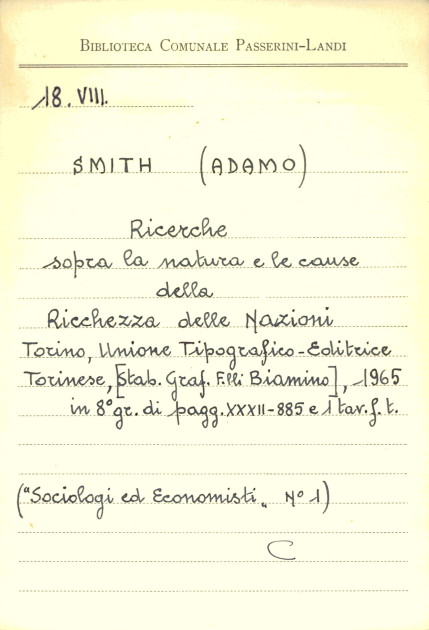 BIBLIOTECA COMUNALE PASSERINI-LANDI
18. VIII.
SMITH (ADAMO)
Ricerche
sopra la natura e le cause
della
Ricchezza delle Nazioni
Torino, Unione Tipografico-Editrice
Torinese, [Stab. Graf. F.lli Biamino], 1965
in 8° gr. di pagg. XXXII-885 e 1 tav. f. t.
("Sociologi ed Economisti„ N° 1)
C